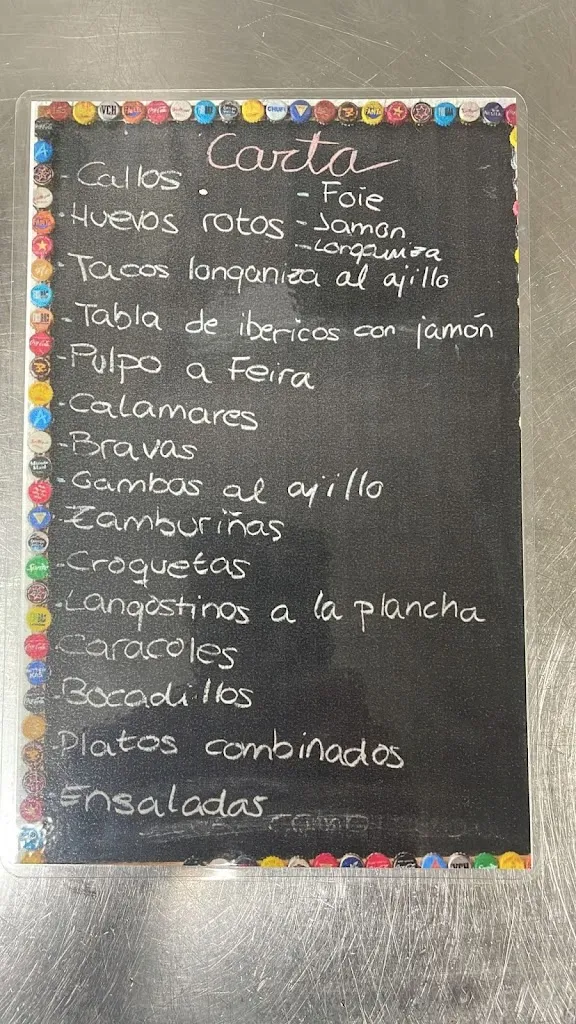 Carta
- Callos
- Huevos rotos - Foie
- Jamon
- Longaniza
- Tacos longaniza al ajillo
- Tabla de ibericos con jamón
- Pulpo a Feira
- Calamares
- Bravas
- Gambas al ajillo
- Zamburiñas
- Croquetas
- Langostinos a la plancha
- Caracoles
- Bocadillos
- Platos combinados
- Ensaladas